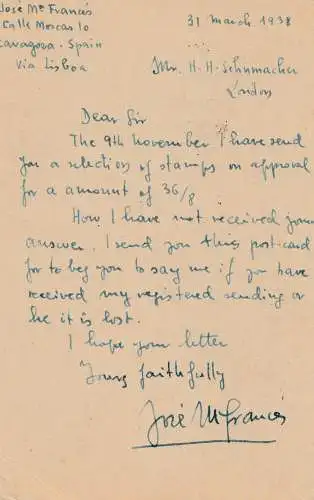 José Mª Francés
Calle Moscas 10
Zaragoza - Spain
Via Lisboa
31 March 1938
Mr. H. H. Schumacher
London
Dear Sir
The 9th november I have send
for a selection of stamps on approval
for a amount of 36/8
How I have not received your
answer, I send you this post-card
for to beg you to say me if you have
received my registered sending or
he it is lost.
I hope your letter
Yours faithfully
José Mª Francés